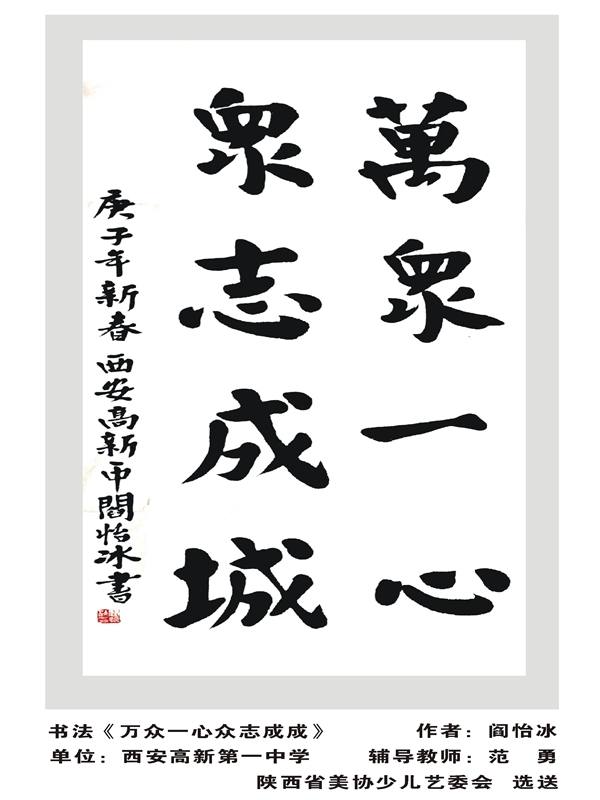 萬眾一心
眾志成城
庚子年新春西安高新一中閻怡冰書
书法《万众一心众志成成》 作者：阎怡冰
单位：西安高新第一中学 辅导教师：范 勇
陕西省美协少儿艺委会 选送